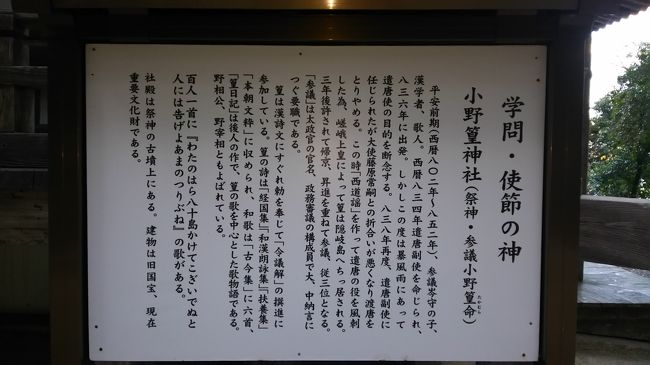 学問・使節の神
小野篁神社（祭神・参議小野篁命）
たかむら
平安前期（西暦八〇二年～八五二年）、参議岑守の子、
漢学者、歌人。西暦八三四年遣唐副使を命じられ、
八三六年に出発。しかしこの度は暴風雨にあって
遣唐使の目的を断念する。八三八年再度、遣唐副使に
任じられたが大使藤原常嗣との折合いが悪くなり渡唐を
とりやめる。この時「西道謡」を作って遣唐の役を風刺
した為、嵯峨上皇によって篁は隠岐島へちっ居される。
三年後許されて帰京、昇進を重ねて参議、従三位となる。
「参議」は太政官の官名、政務審議の構成員で大、中納言に
つぐ要職である。
篁は漢詩文にすぐれ勅を奉じて「令議解」の撰進に
参加している。篁の詩は「経国集」「和漢朗詠集」「扶養集」
「本朝文粋」に収められ、和歌は「古今集」に六首、
「篁日記」は後人の作で、篁の歌を中心とした歌物語である。
野相公、野宰相ともよばれている。
百人一首に『わたのはら八十島かけてこぎいでぬと
人には告げよあまのつりぶね』の歌がある。
社殿は祭神の古墳上にある。建物は旧国宝、現在
重要文化財である。